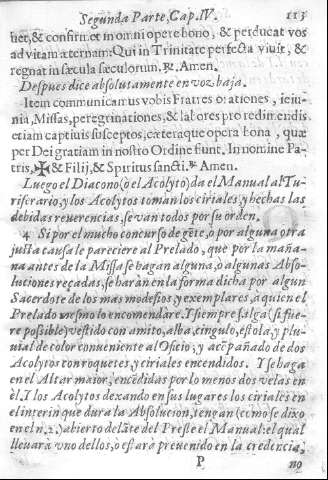 Segunda Parte, Cap. IV. 113
uet, & confirmet in omni opere bono, & perducat vos
ad vitam æternam: Qui in Trinitate perfecta viuit, &
regnat in sæcula sæculorum. ℟. Amen.
Despues dice absolutamente en voz baja.
Item communicamus vobis Fratres orationes, ieiu-
nia, Missas, peregrinationes, & labores pro redimendis
etiam captiuis susceptos, cæteraque opera bona, quæ
per Dei gratiam in nostro Ordine fiunt. In nomine Pa-
tris, ✠ & Filij, & Spiritus sancti. ℟. Amen.
Luego el Diacono (ò el Acolyto) da el Manual al Tu-
riferario, y los Acolytos toman los ciriales, y hechas las
debidas reuerencias, se van todos por su orden.
4 Si por el mucho concurso de gẽte, ò por alguna otra
justa causa le pareciere al Prelado, que por la maña-
na antes de la Missa se hagan alguna, ò algunas Abso-
luciones reçadas, se haràn en la forma dicha por algun
Sacerdote de los mas modestos y exemplares, à quien el
Prelado mesmo lo encomendàre. Y siempre salga (si fue-
re possible) vestido con amito, alba, cingulo, estola, y plu-
uial de color conueniente al Oficio, y acõpañado de dos
Acolytos con roquetes, y ciriales encendidos. Y se haga
en el Altar maior, encẽdidas por lo menos dos velas en
èl. Y los Acolytos dexando en sus lugares los ciriales en
el interin que dura la Absolucion, tengan (como se dixo
en el n. 2.) abierto delãte del Preste el Manual: el qual
lleuarà vno dellos, ò estarà preuenido en la credencia,
P no